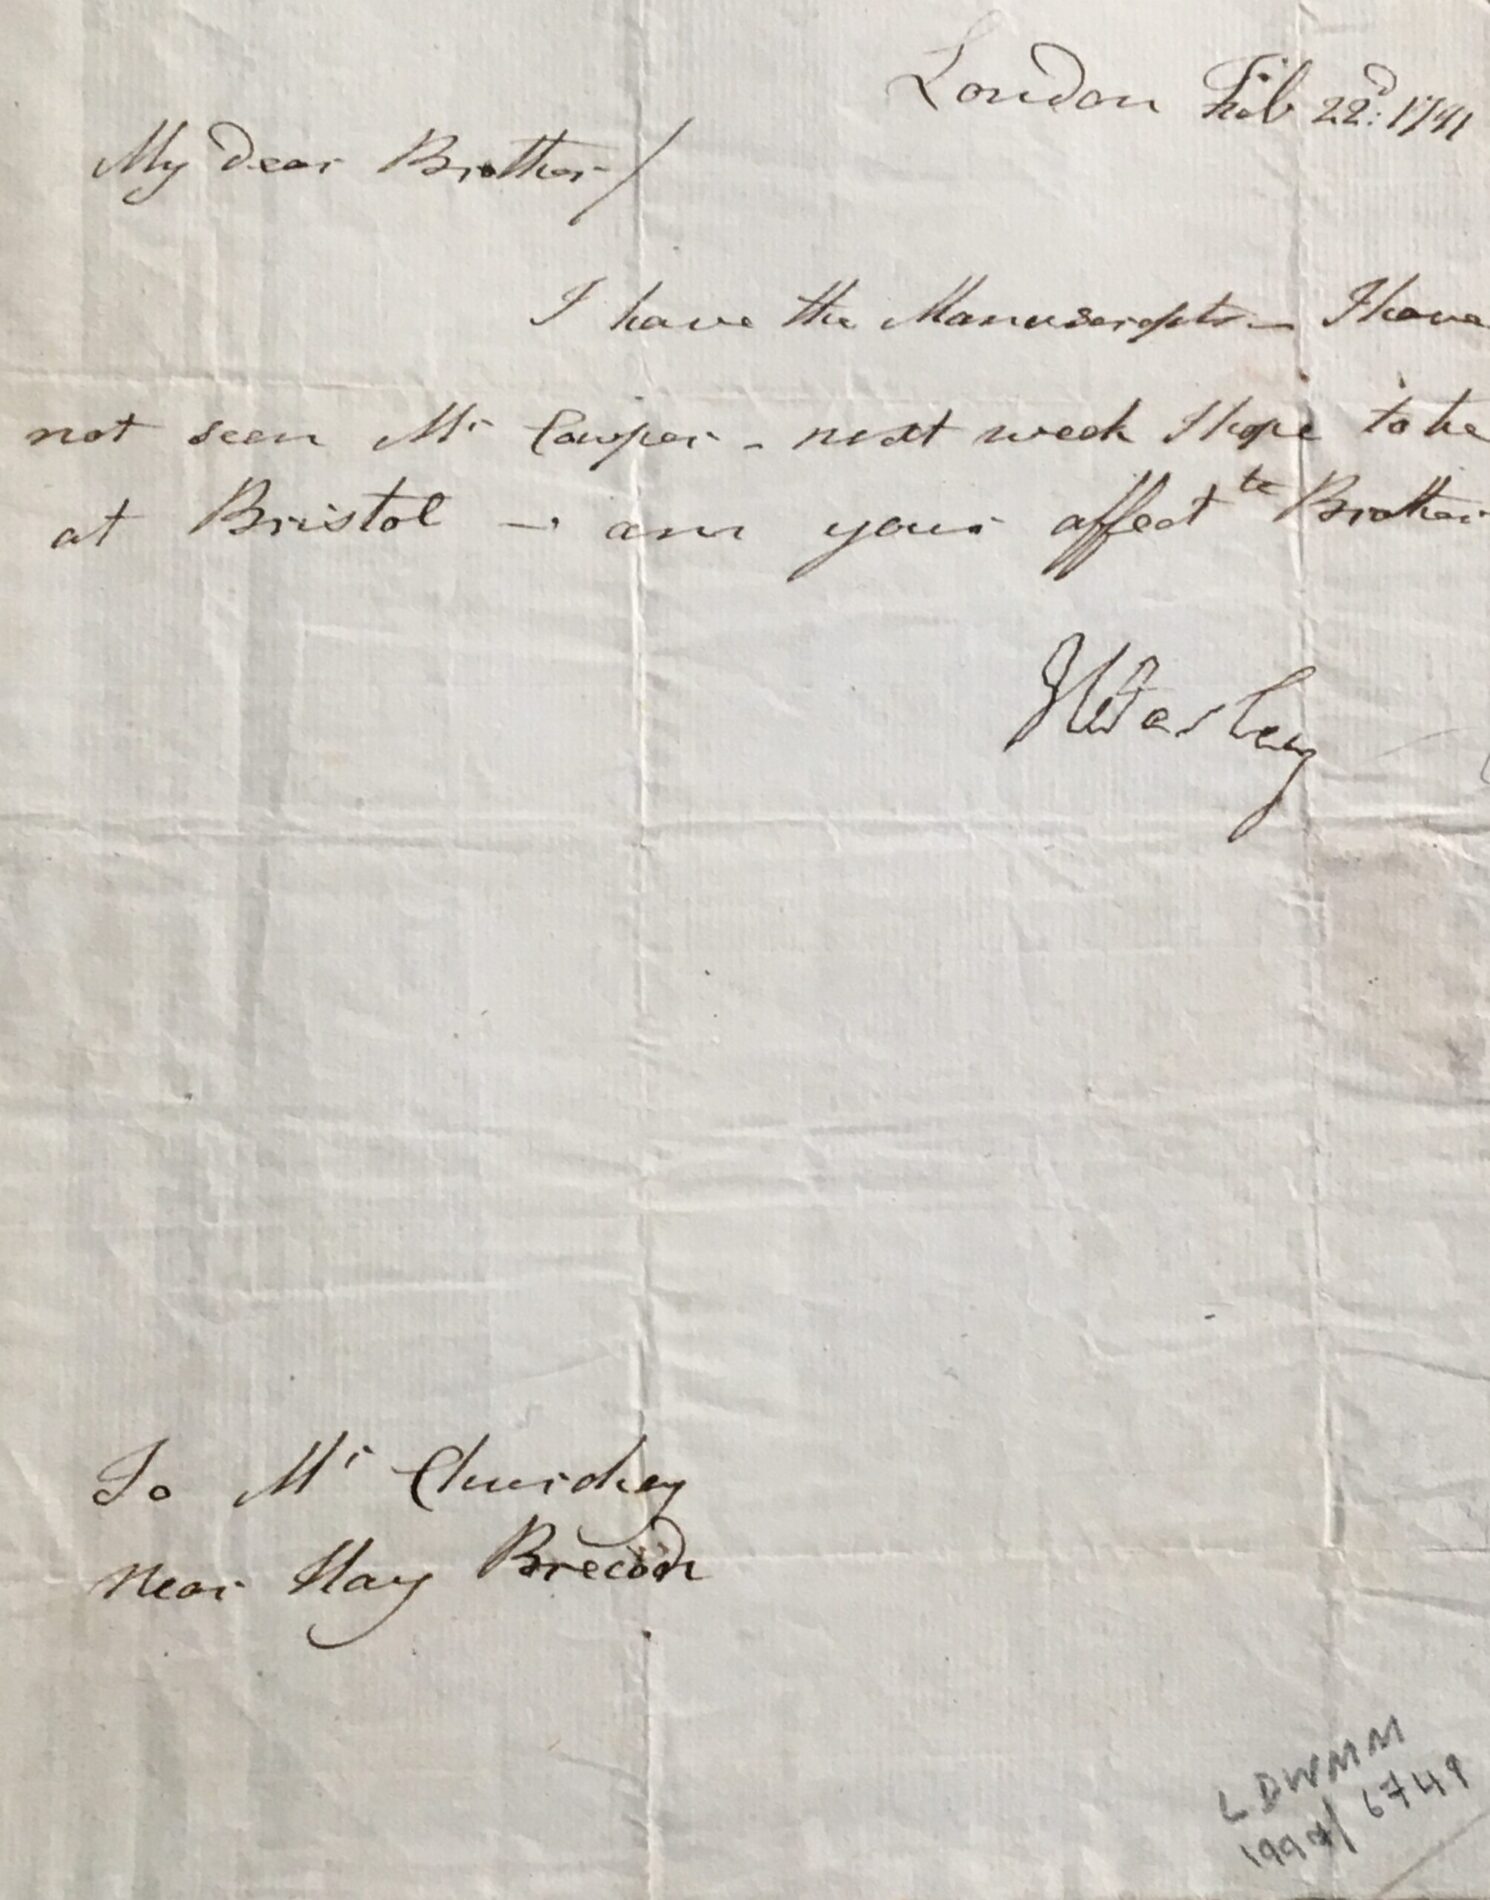 London Feb 22d: 1791
My Dear Brother/
I have the Manuscripts – I have
not seen Mr Cowper – next week I hope to be
at Bristol – am your affectte Brother
J Wesley
To Mr Churchey
Near Hay Brecon
LDWMM
1997/6749